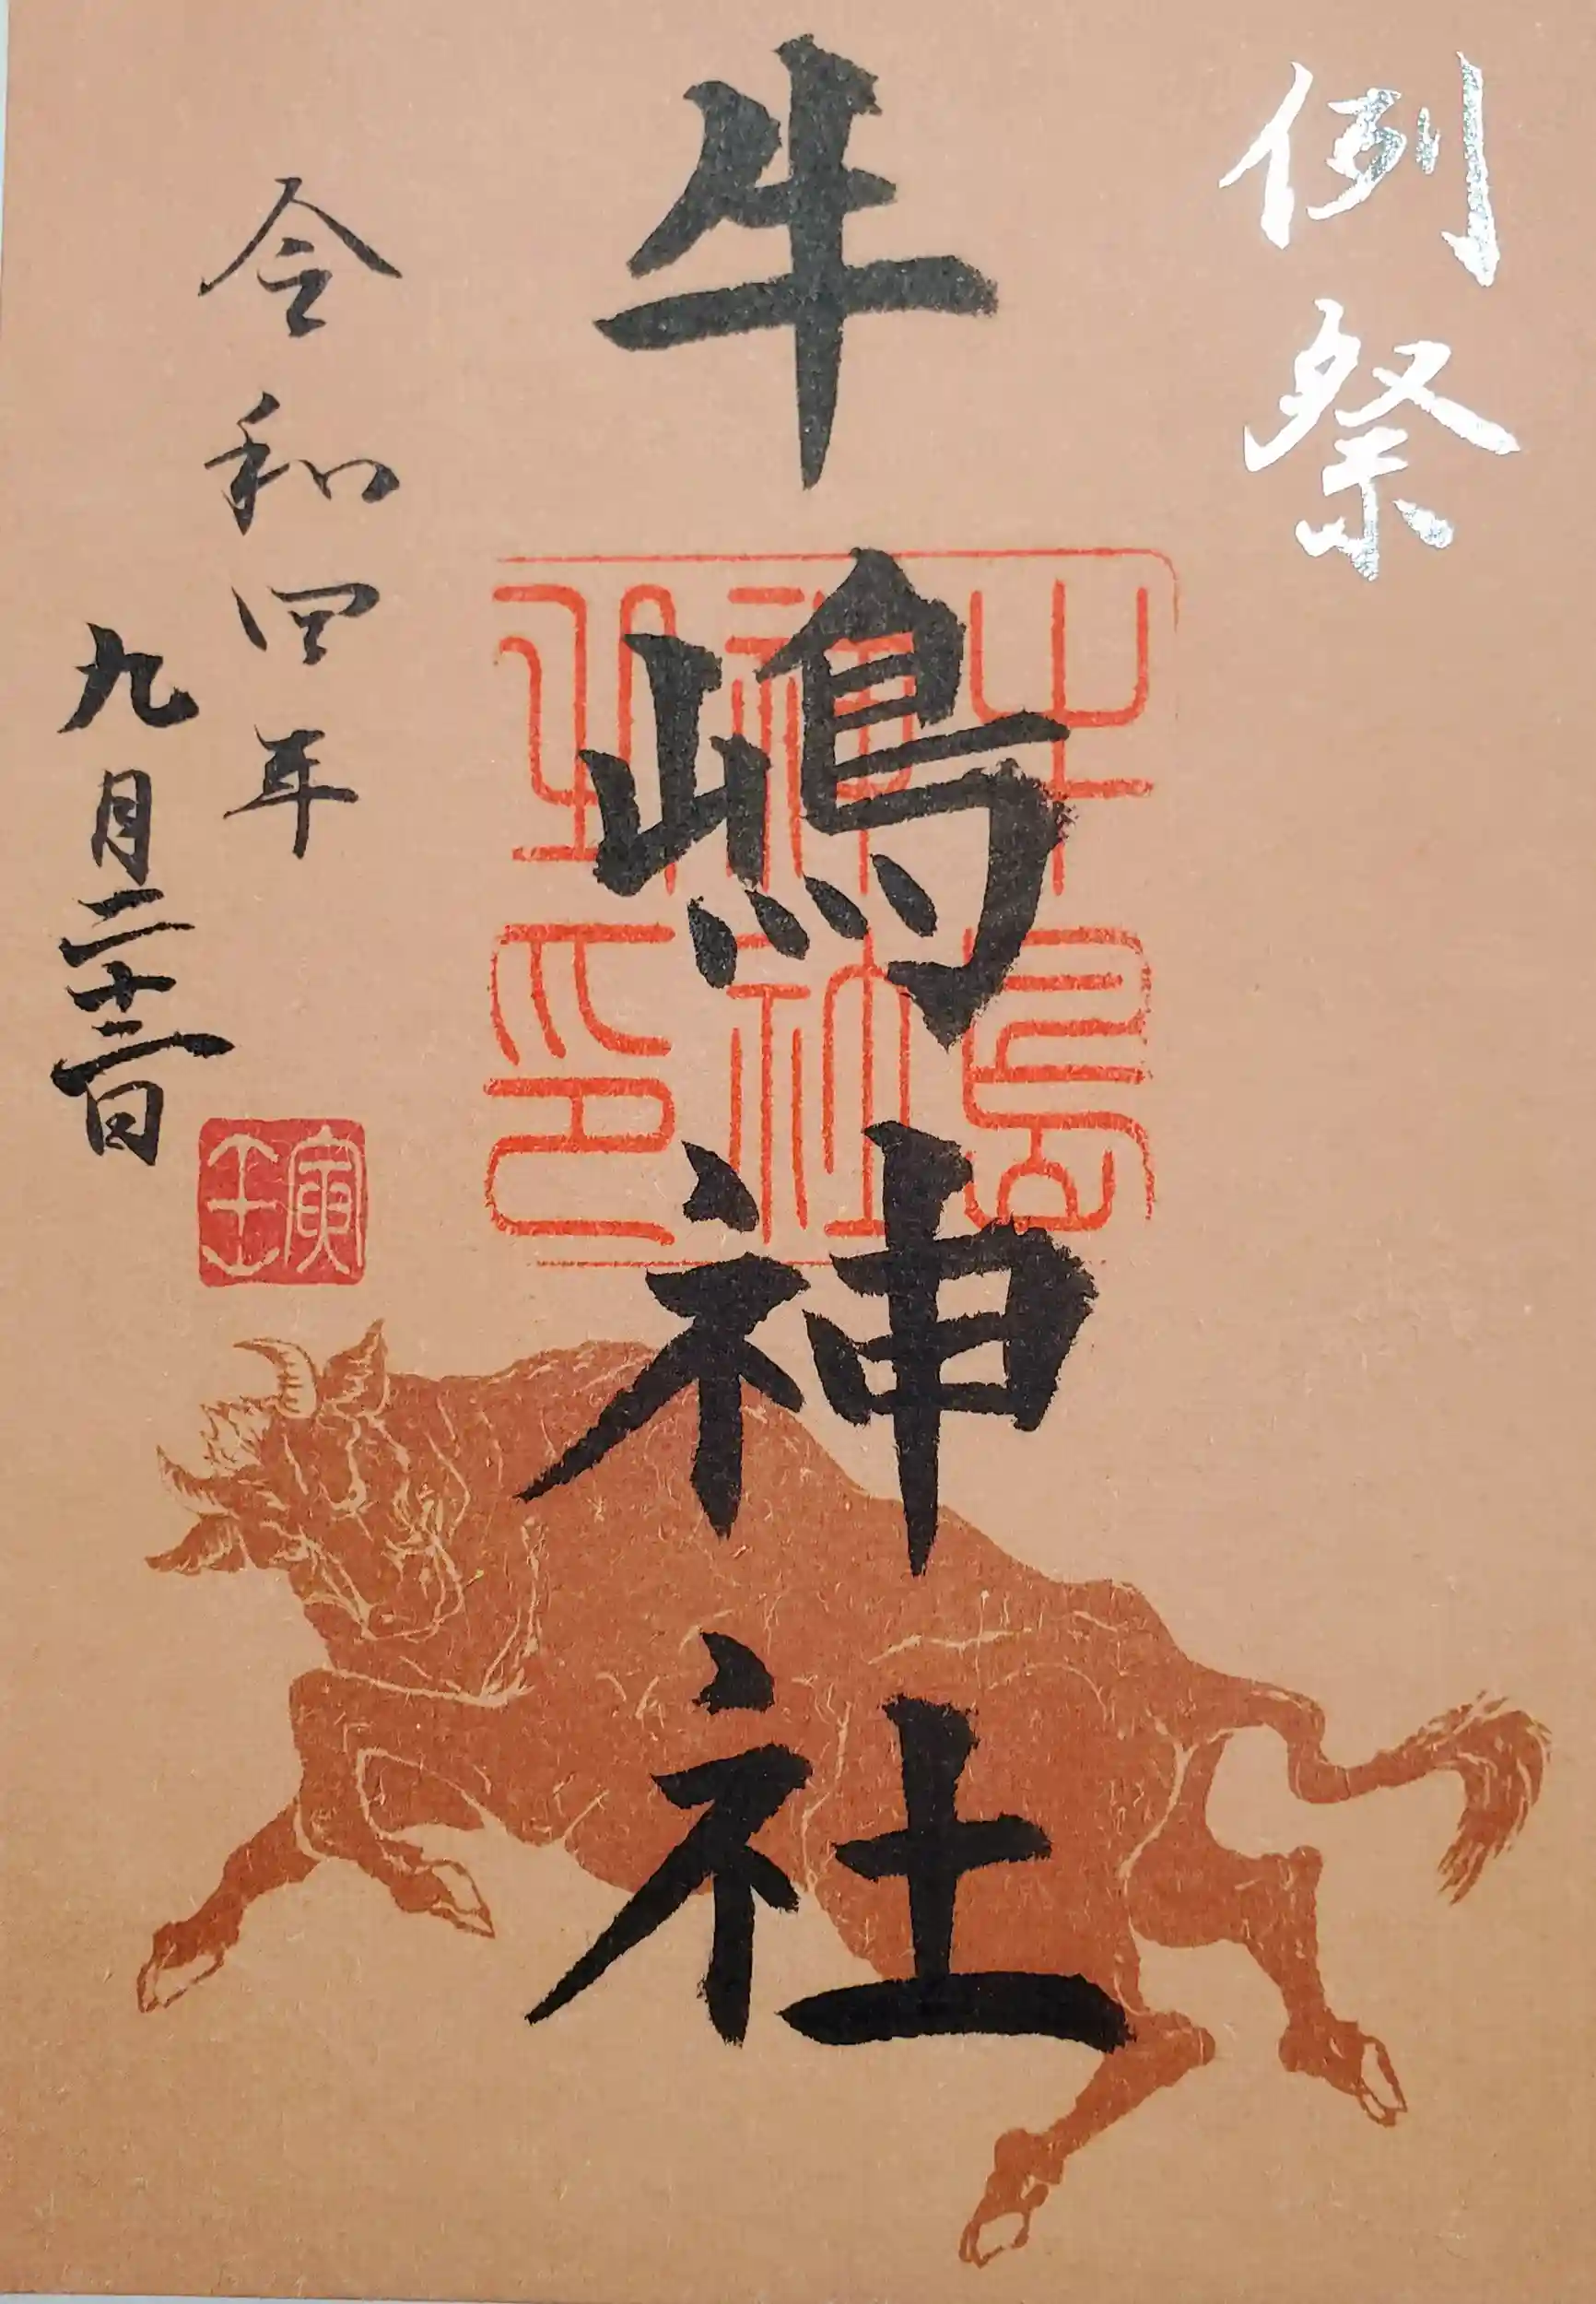 例祭
牛嶋神社
牛島
神社
之印
令和四年
九月二十二日
壬寅